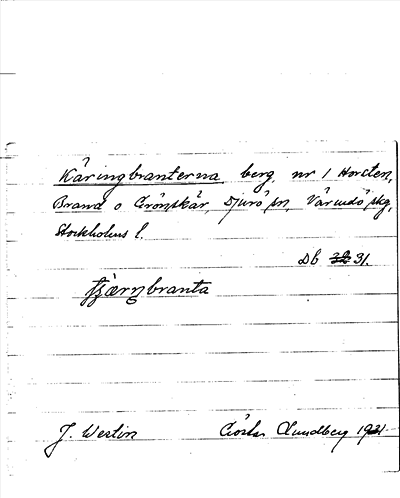 Käringbranterna, berg, nr 1 Horsten,
Brand o Grönskär, Djurö sn, Värmdö skg,
Stockholms l.
Db 31.
J. Westin Gösta Lundberg 1931